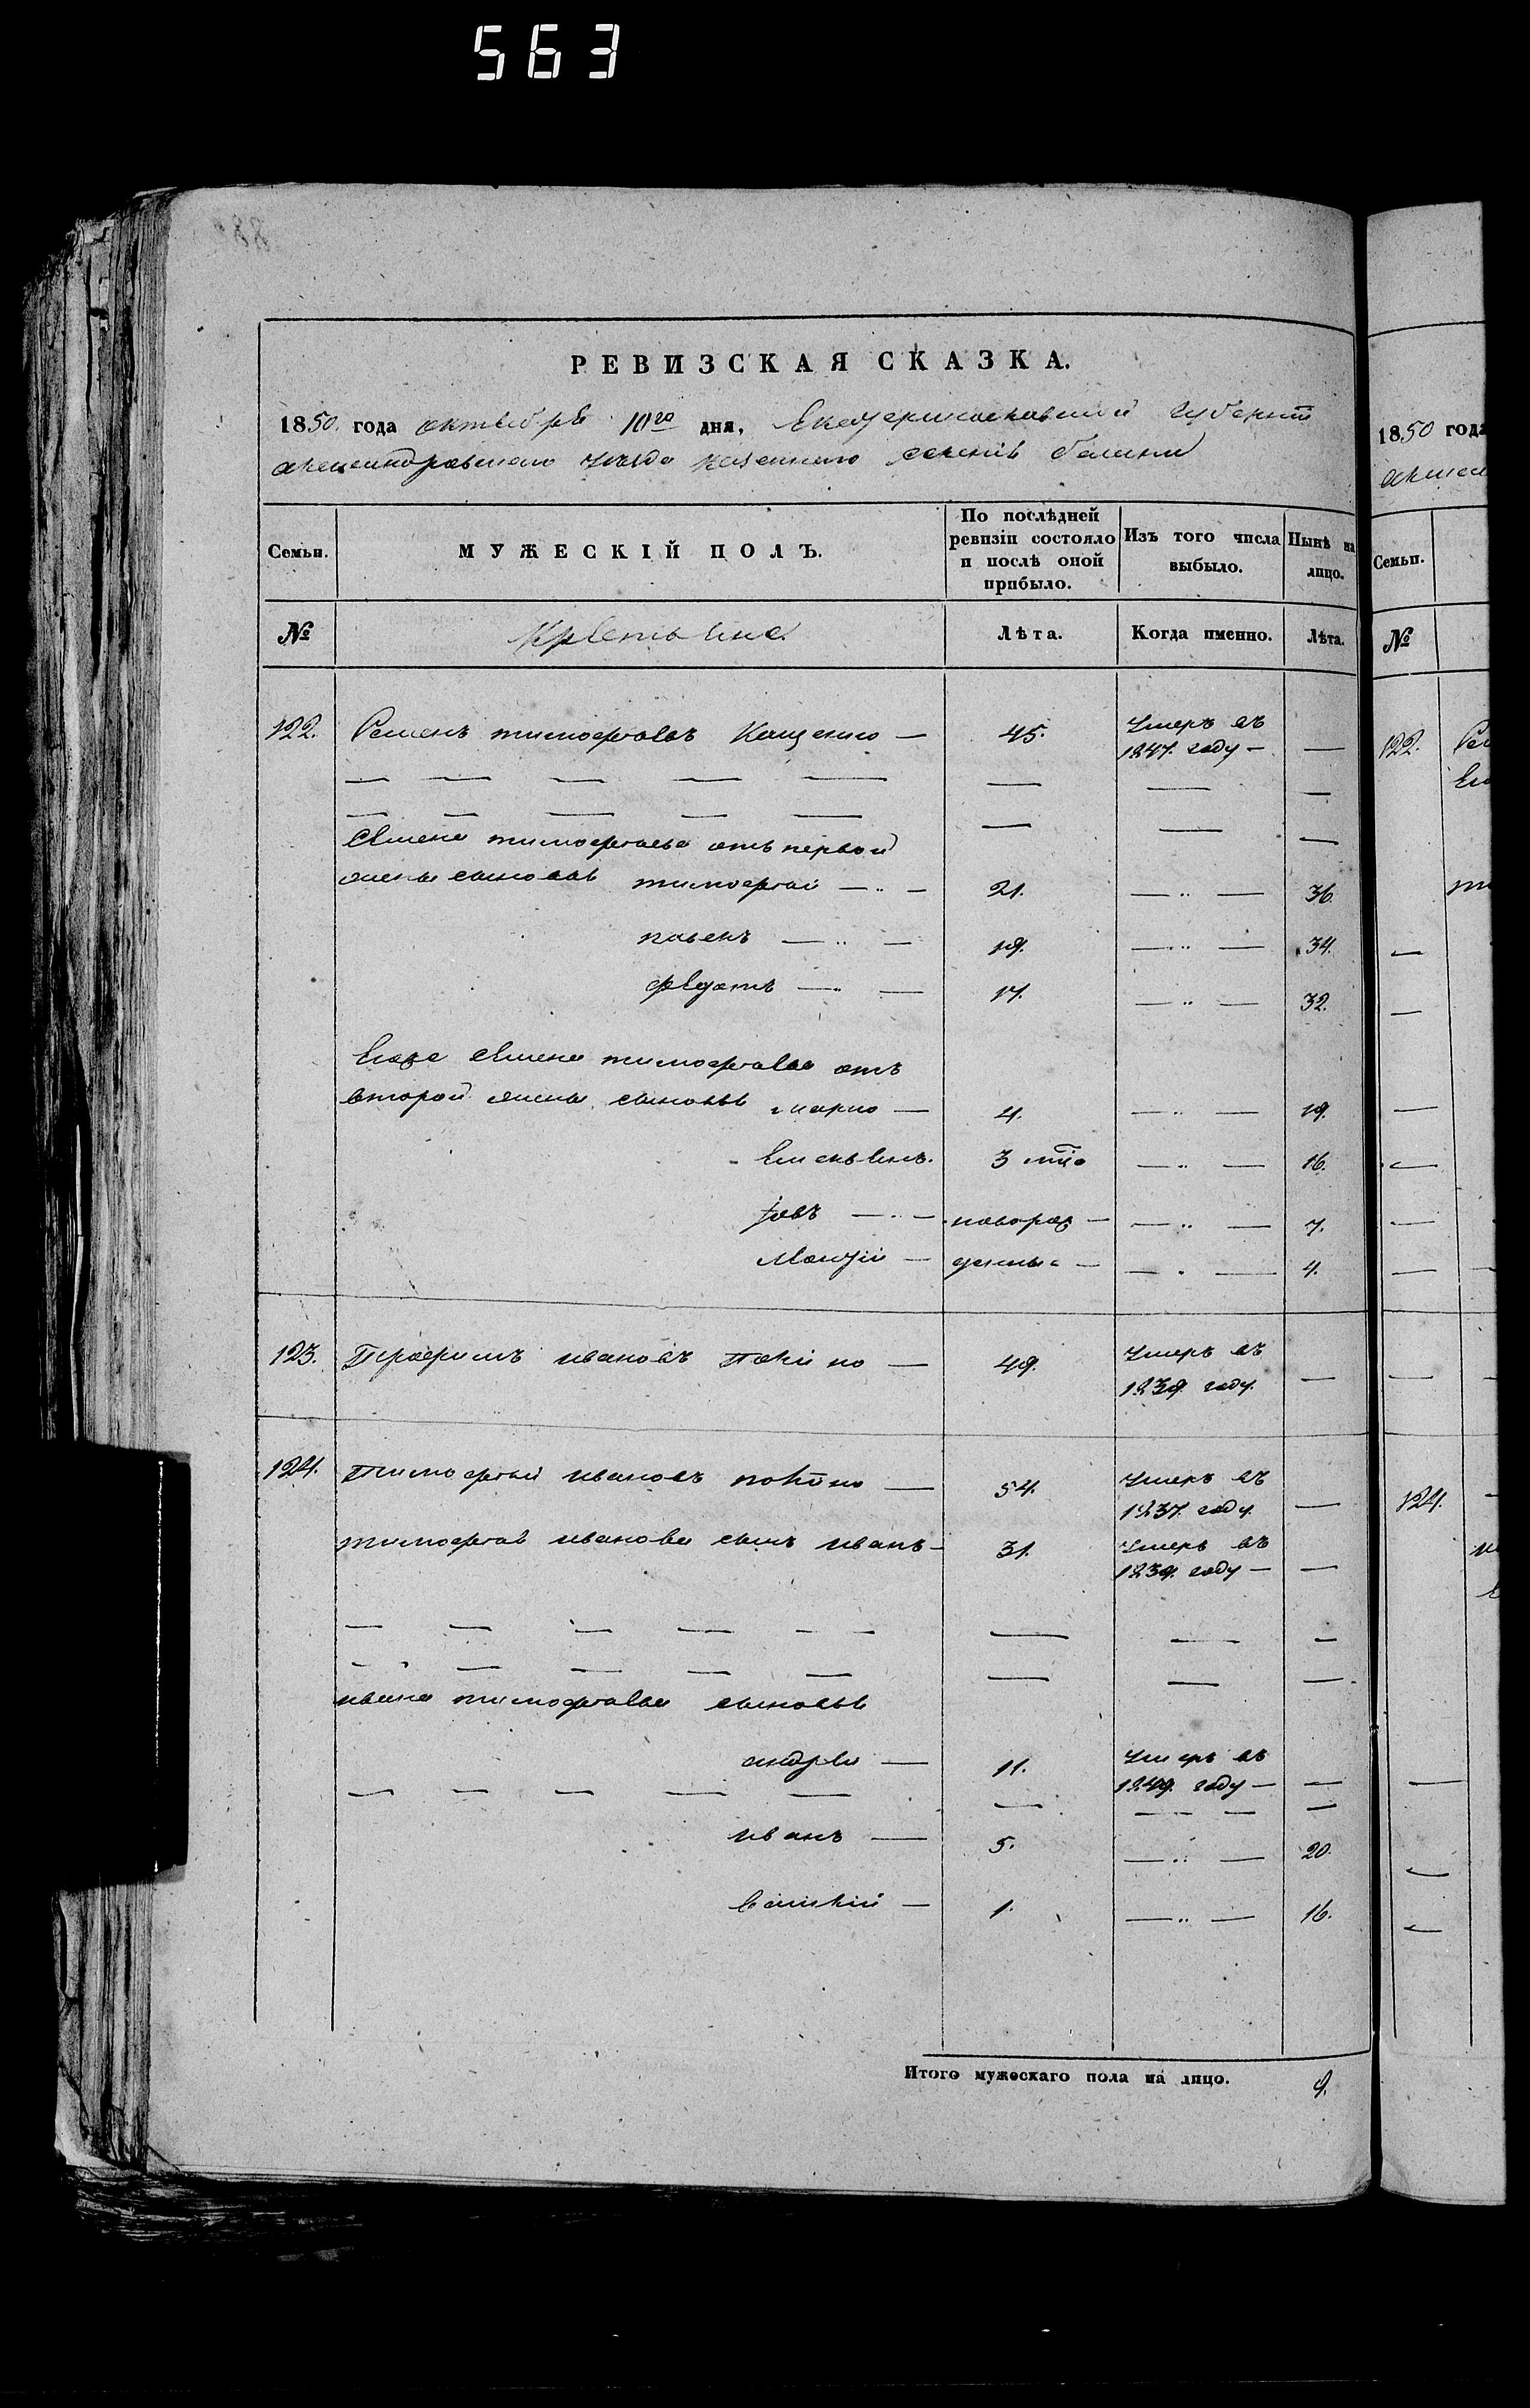 563
РЕВИЗСКАЯ СКАЗКА.
1850. года октября 10го дня, Екатеринославской губернии
александровского уезда казенного селенія
Семьи.
МУЖЕСКІЙ ПОЛЪ.
По послѣдней ревизіи состояло и послѣ оной прибыло.
Изъ того числа выбыло.
Нынѣ на лицо.
№
Лѣта.
Когда именно.
Лѣта.
122. Семенъ тимофѣевъ Кащенко — 45. Умеръ въ
1847. году — —
Семена тимофѣева отъ первой
жены сыновья тимофей — 21. — 36.
павелъ — 19. — 34.
федотъ — 17. — 32.
Его же Семена тимофѣева отъ
второй жены сыновья марко — 4. — 19.
Емельянъ. 3 — 16.
Іовъ — новорож — 7.
Моисѣй — денные — 4.
123. Трофимъ ивановъ — 49. Умеръ въ
1839. году. —
124. Тимофей ивановъ — 54. Умеръ въ
1837. году. —
тимофея иванова сынъ иванъ — 31. Умеръ въ
1839. году — —
ивана тимофѣева сыновья
андрей — 11. Умеръ въ
1849. году — —
иванъ — 5. — 20.
— 1. — 16.
Итого мужескаго пола на лицо. 9.
1850 года
Семьи.
№
122.
124.